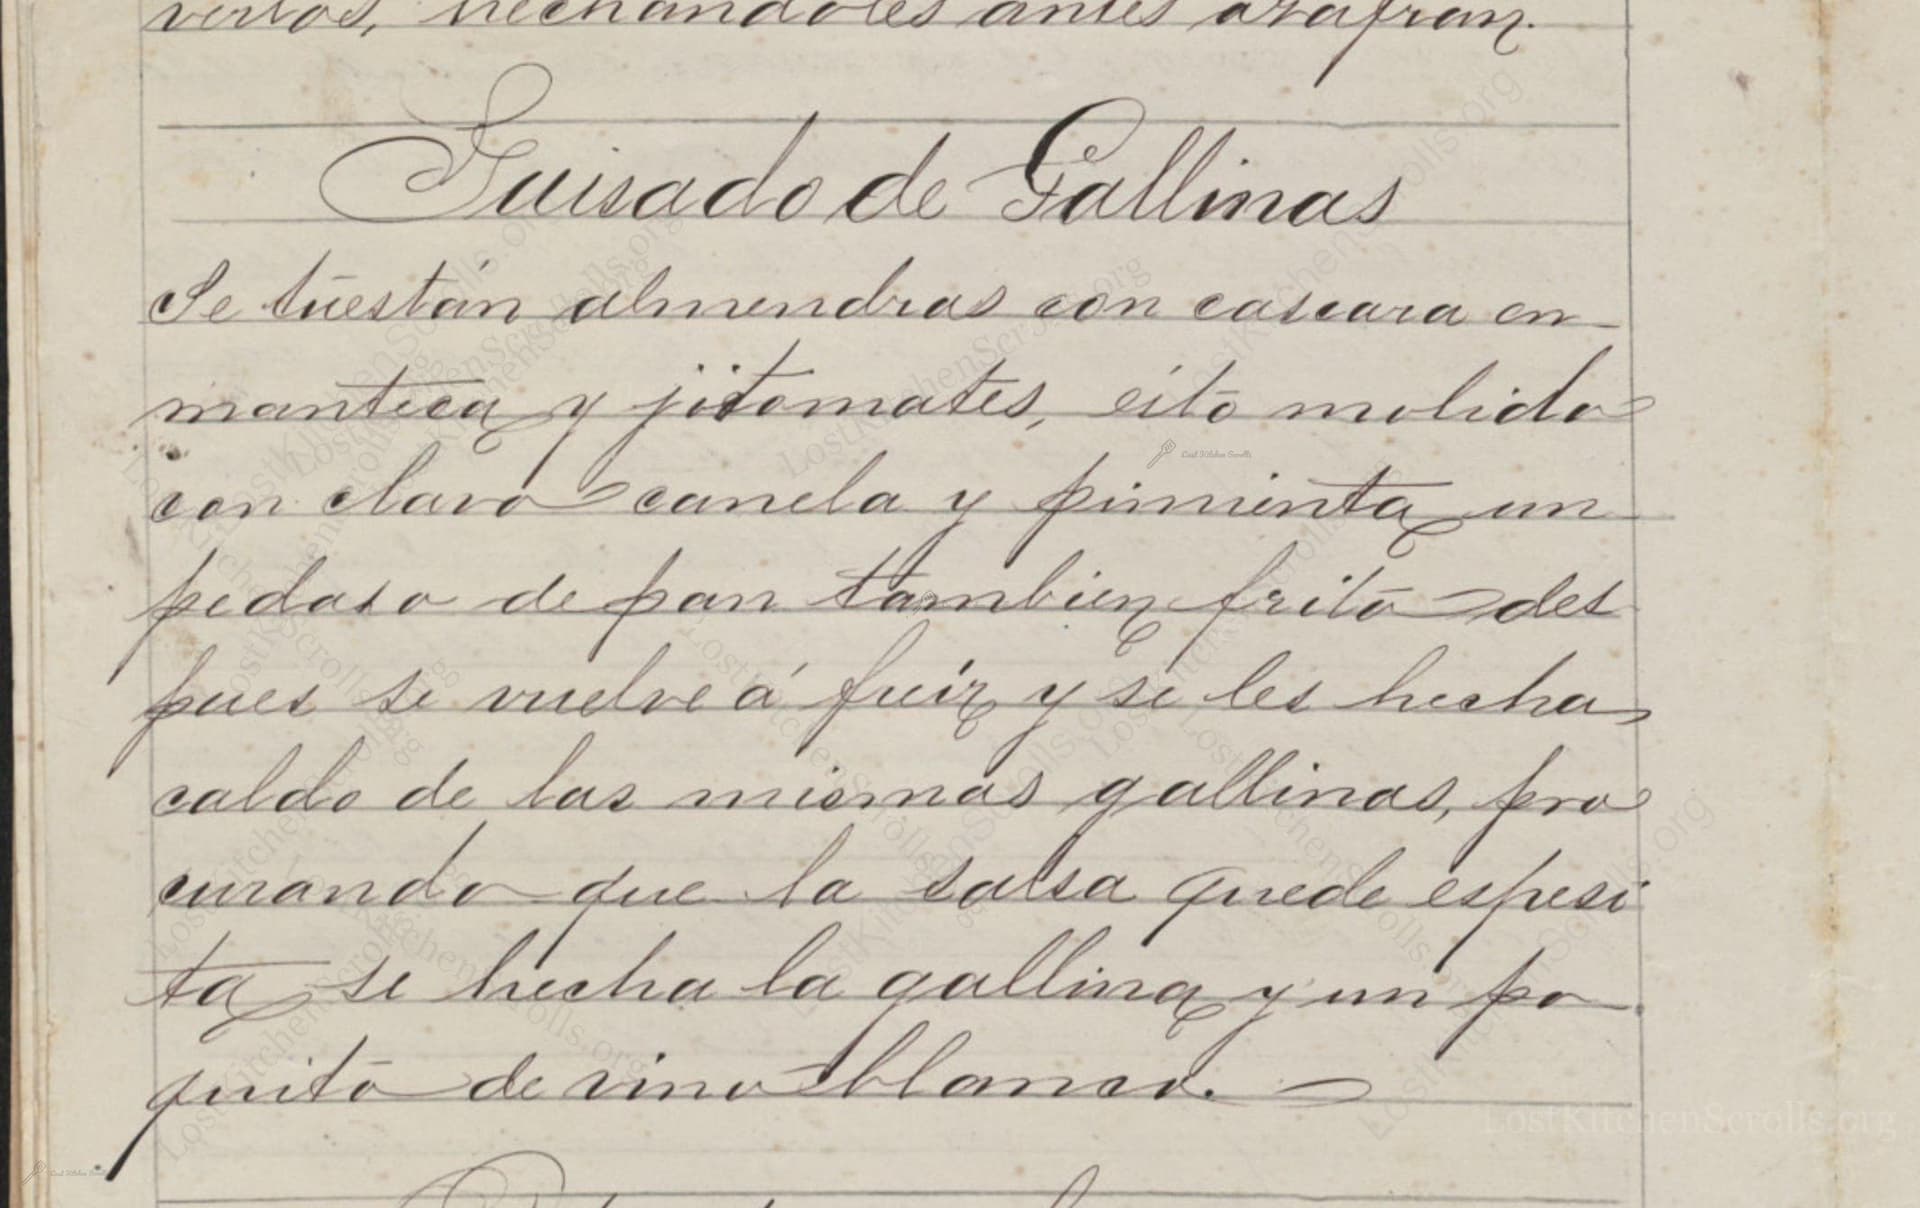 vertos, hechandoles antes azafran.
Guisado de Gallinas
Se tuestán almendras con cascara en
manteca y jitomates, eito molido
con clavo canela y pimienta un
pedaso de pan tambien frito des
pues se vuelve á freir y se les hecha
caldo de las mismas gallinas, pro
curando que la salsa quede espesi
ta se hecha la gallina y un po
quito de vino blanco.
LostKitchenScrolls.org